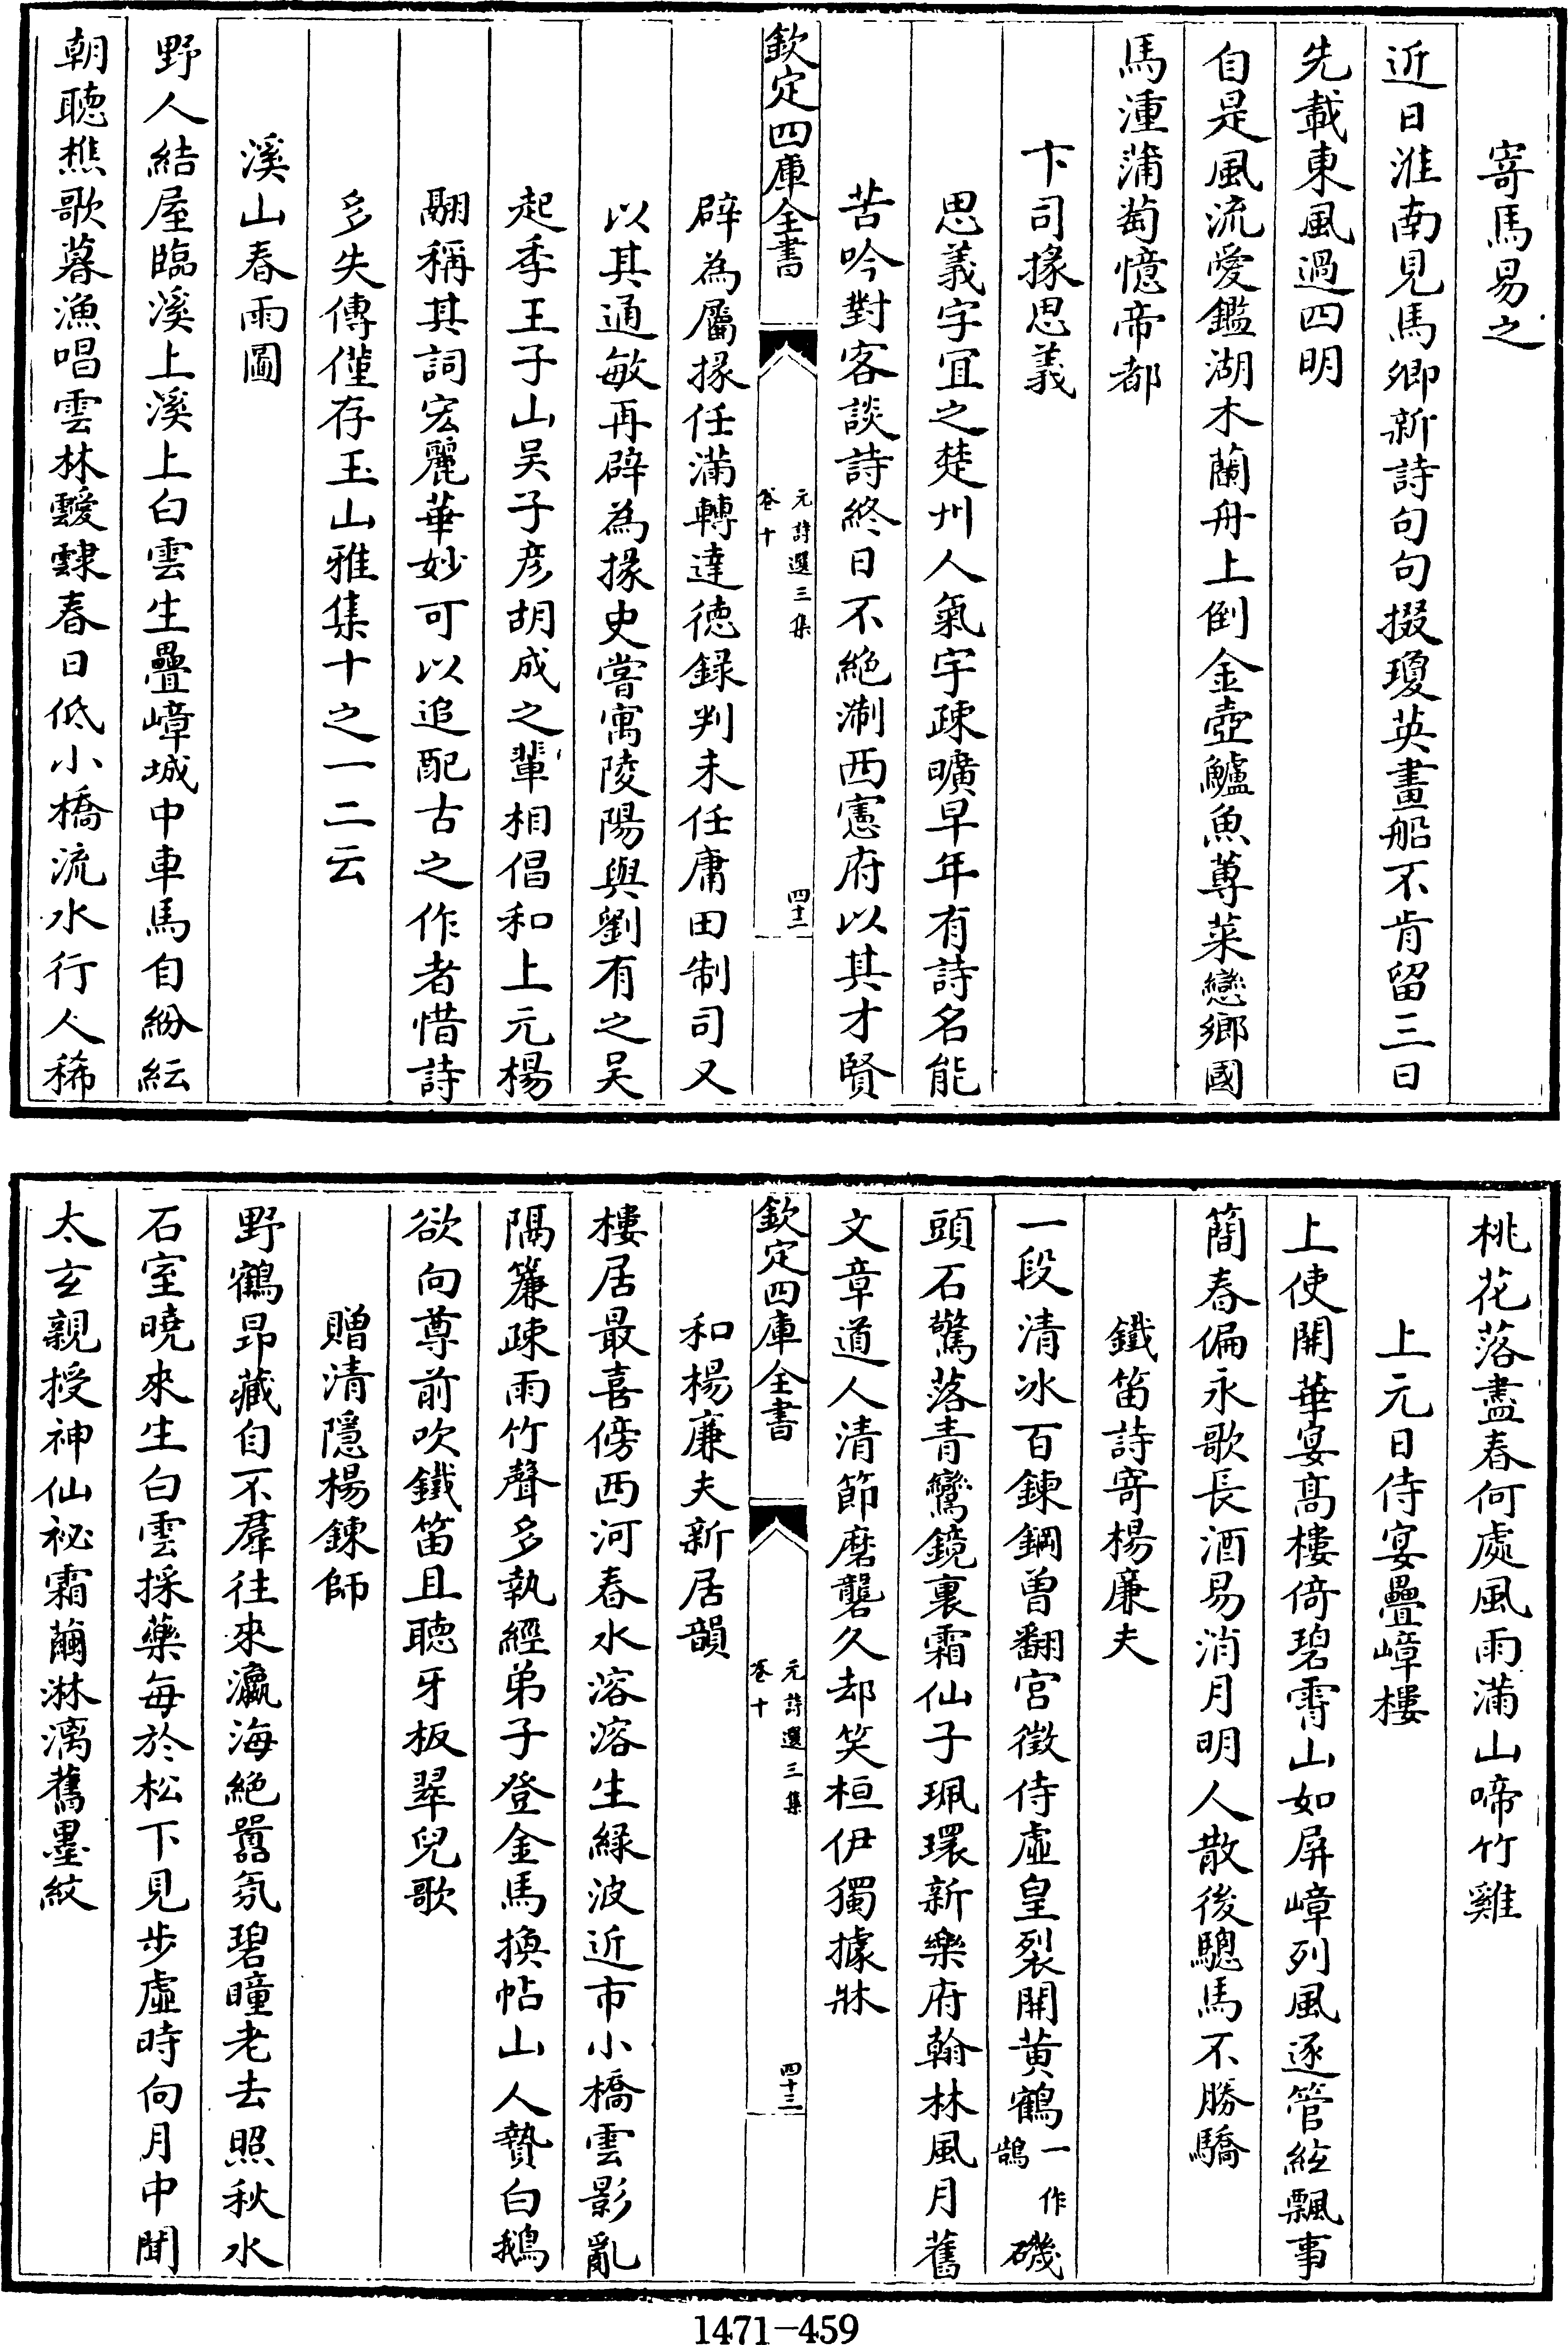 寄馬易之
近日淮南見馬卿新詩句句掇瓊英畫船不肯留三日
先載東風過四明
自是風流愛鑑湖木蘭舟上倒金壺鱸魚蓴菜戀鄉國
馬湩蒲萄憶帝都
卞司掾思義
思義字宜之楚州人氣宇疎曠早年有詩名能
苦吟對客談詩終日不絶淛西憲府以其才賢
欽定四庫全書
元詩選三集
卷十
四十二
辟為屬掾任滿轉達德録判未任庸田制司又
以其通敏再辟為掾史嘗寓陵陽與劉有之吴
起季王子山吴子彦胡成之輩相倡和上元楊
翮稱其詞宏麗華妙可以追配古之作者惜詩
多失傳僅存玉山雅集十之一二云
溪山春雨圖
野人結屋臨溪上溪上白雲生疊嶂城中車馬自紛紜
朝聴樵歌暮漁唱雲林靉靆春日低小橋流水行人稀
桃花落盡春何處風雨滿山啼竹雞
上元日侍宴疊嶂樓
上使開華宴髙樓倚碧霄山如屏嶂列風逐管絃飄事
簡春偏永歌長酒易消月明人散後驄馬不勝驕
鐵笛詩寄楊廉夫
一段清冰百鍊鋼曽翻宮徵侍虛皇裂開黄鶴一作鵲磯
頭石驚落青鸞鏡裏霜仙子珮環新樂府翰林風月舊
文章道人清節磨礱久却笑桓伊獨據牀
欽定四庫全書
元詩選三集
卷十
四十三
和楊廉夫新居韻
樓居最喜傍西河春水溶溶生緑波近市小橋雲影亂
隔簾疎雨竹聲多執經弟子登金馬換帖山人贄白鵝
欲向尊前吹鐵笛且聴牙板翠兒歌
贈清隱楊鍊師
野鶴昂藏自不羣往來瀛海絶囂氛碧瞳老去照秋水
石室曉來生白雲採藥每於松下見步虛時向月中聞
太玄親授神仙祕霜繭淋漓舊墨紋
1471-459